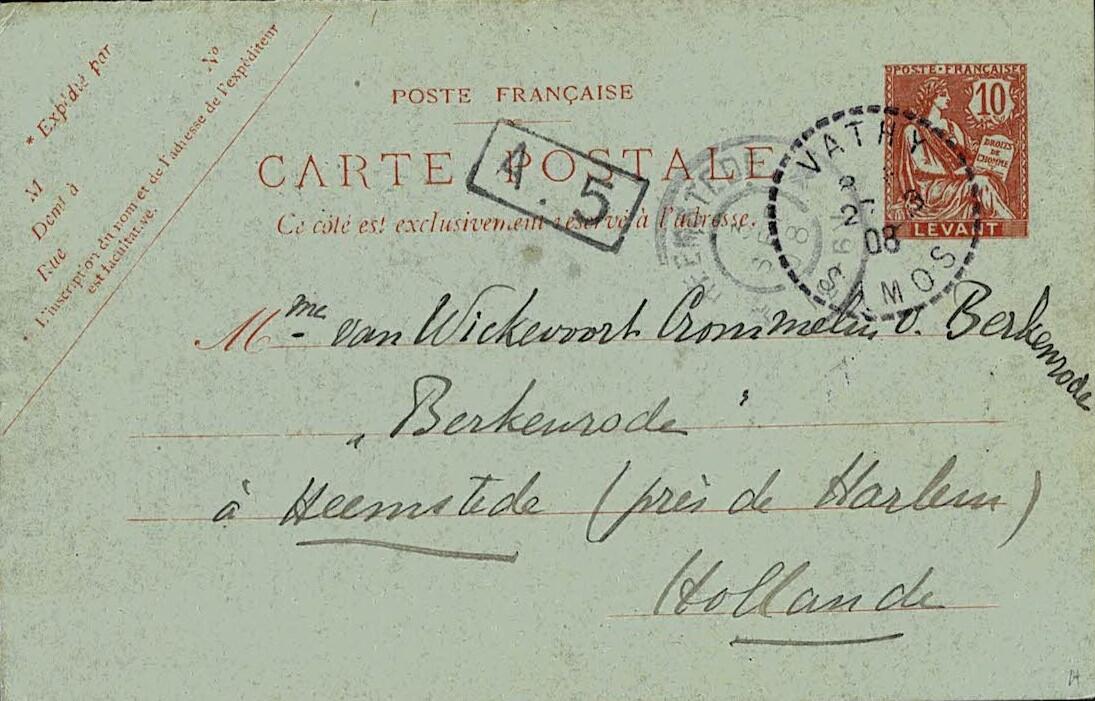 * Expédié par
M
Demt à
Rue
N°
L'inscription du nom et de l'adresse de l'expéditeur
est facultative.
POSTE FRANÇAISE
CARTE POSTALE
Ce côté est exclusivement réservé à l'adresse.
A. 5
HEEMSTEDE
VATHY
2
08
SAMOS
POSTE·FRANÇAISE
10
DROITS
DE
L'HOMME
LEVANT
Mme van Wickevoort Crommelin v. Berkenrode
„Berkenrode"
à Heemstede (près de Harlem)
Hollande